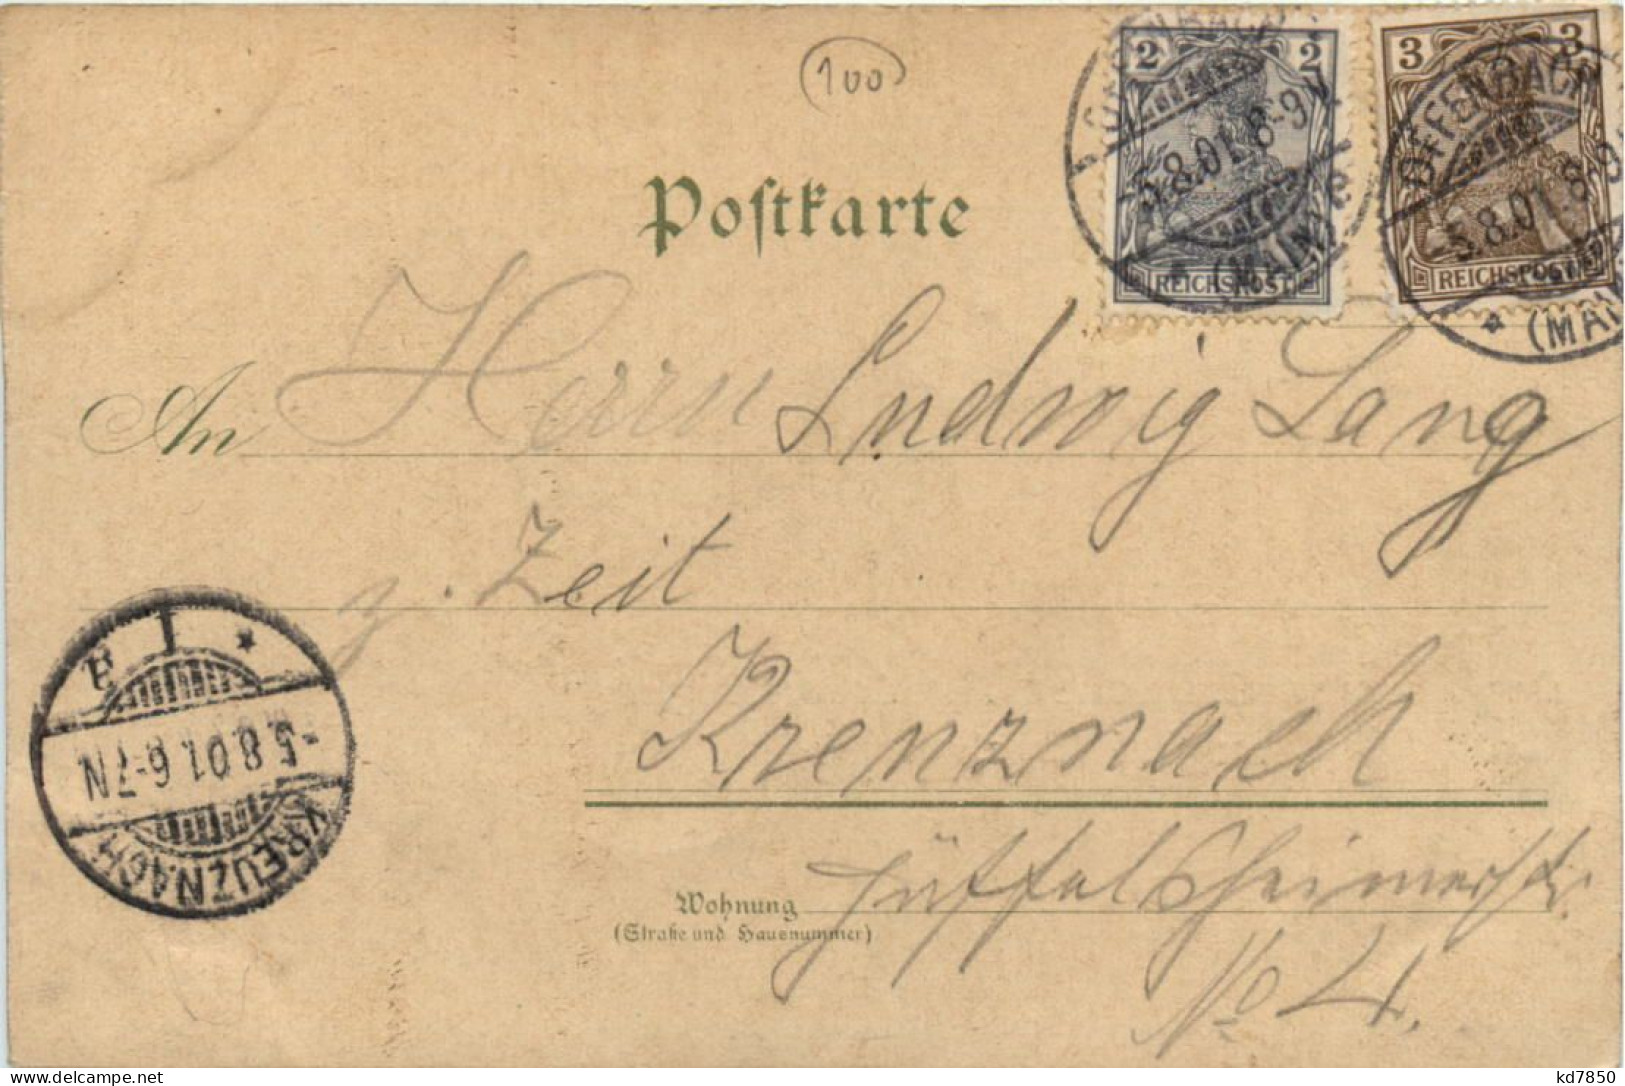 100
2 2
3 3
REICHSPOST
REICHSPOST
OFFENBACH
5.8.01.8-9V.
* (MAIN) * e
OFFENBACH
5.8.01.8-9
* (MAIN
Postkarte
An Herrn Ludwig Lang
z. Zeit
Kreuznach
Wohnung Hüffelsheimerstr.
(Straße und Hausnummer)
No 4.
* 1 a
-5.8.01.6-7N
KREUZNACH
delcampe.net
kd7850